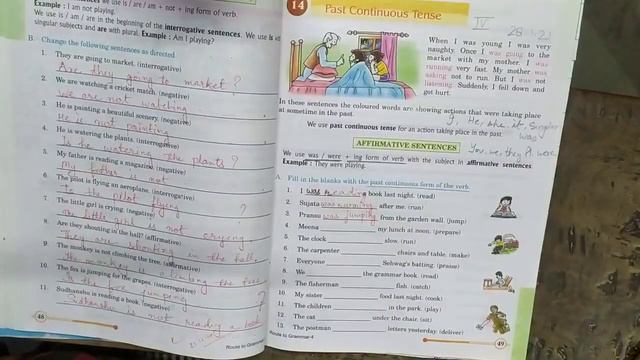 we use is / are / am + not + ing form of verb.
Example : I am not playing.
We use is / am / are in the beginning of the interrogative sentences. We use is
singular subjects and are with plural. Example : Am I playing?
B. Change the following sentences as directed
1. They are going to market. (interrogative)
Are they going to market ?
2. We are watching a cricket match. (negative)
We are not watching
3. He is painting a beautiful scenery. (negative)
He is not painting
4. He is watering the plants. (interrogative)
Is he watering the plants ?
5. My father is reading a magazine. (negative)
My father is not
6. The pilot is flying an aeroplane. (interrogative)
Is pilot flying ?
7. The little girl is crying. (negative)
The little girl is not crying
8. Are they shouting in the hall? (affirmative)
They are shouting in the hall
9. The monkey is not climbing the tree. (affirmative)
The monkey is climbing the tree
10. The fox is jumping for the grapes. (interrogative)
Is the fox jumping ?
11. Sudhanshu is reading a book. (negative)
Sudhanshu is not reading a book
48
Route to Grammar
14
Past Continuous Tense
IV
When I was young I was very
naughty. Once I was going to the
market with my mother. I was
running very fast. My mother was
asking not to run. But I was not
listening. Suddenly, I fell down and
got hurt.
In these sentences the coloured words are showing actions that were taking place
at sometime in the past.
I, He, she, it, singular
was
We use past continuous tense for an action taking place in the past.
You, we, they were
AFFIRMATIVE SENTENCES
We use was / were + ing form of verb with the subject in affirmative sentences.
Example : They were playing.
A. Fill in the blanks with the past continuous form of the verb.
1. I was reading book last night. (read)
2. Sujata was running after me. (run)
3. Pranau was jumping from the garden wall. (jump)
4. Meena my lunch at noon. (prepare)
5. The clock slow. (run)
6. The carpenter chairs and table. (make)
7. Everyone Sehwag's batting. (praise)
8. We the grammar book. (read)
9. The fisherman fish. (catch)
10. My sister food last night. (cook)
11. The children in the park. (play)
12. The cat under the chair. (sit)
13. The postman letters yesterday. (deliver)
Route to Grammar-4
49